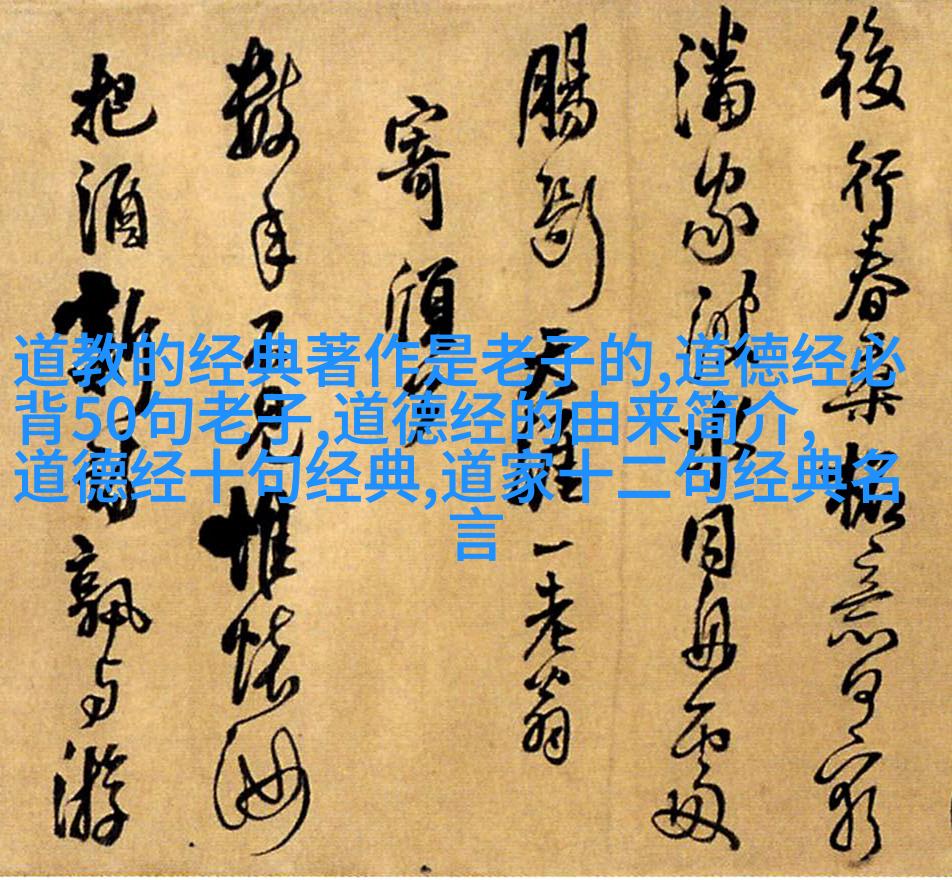 道教的经典著作是老子的,道德经必
背50句老子,道德经的由来简介,
道德经十句经典,道家十二句经典名
言
後行春意日窮
潘家
腸斷天涯一老翁
寄
數年不見惟懷
把酒新孰与游